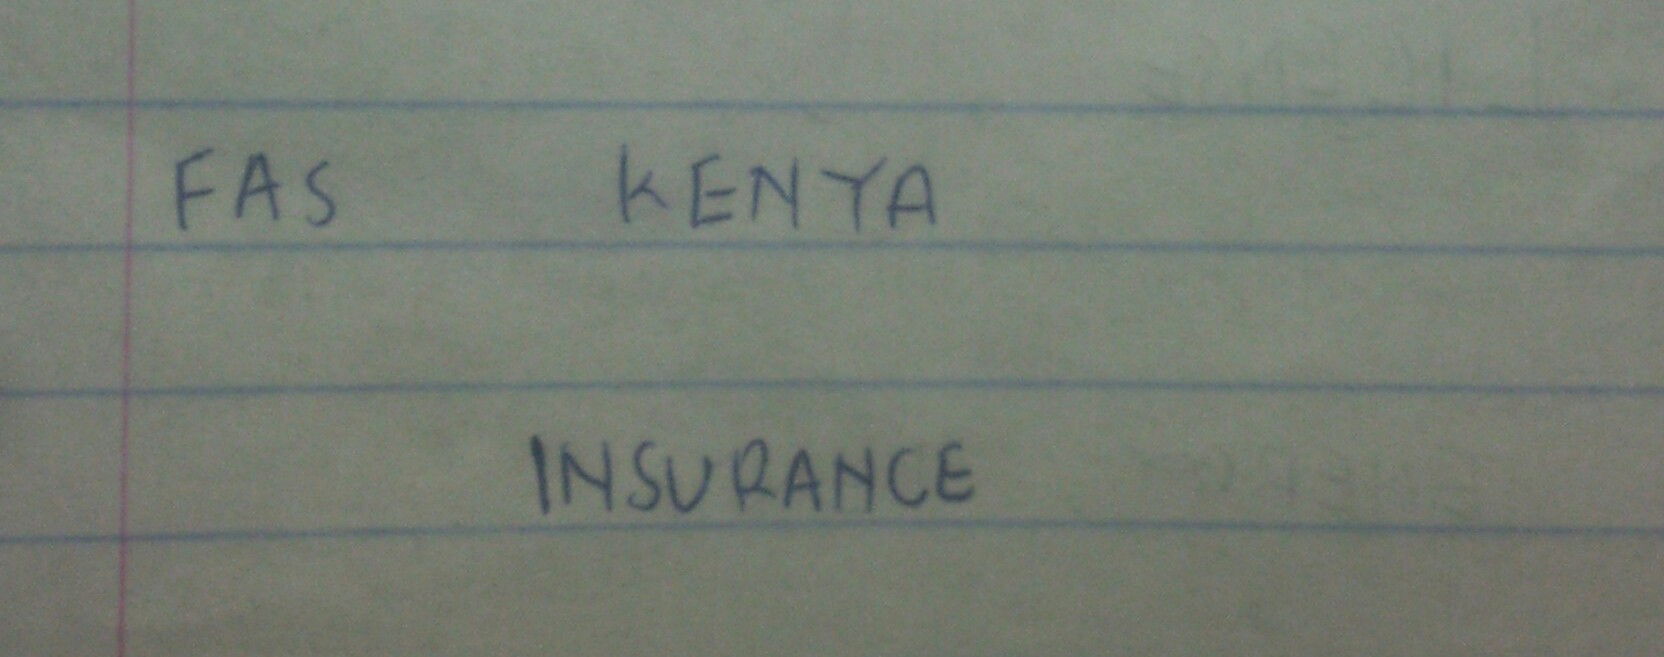 FAS KENYA
INSURANCE